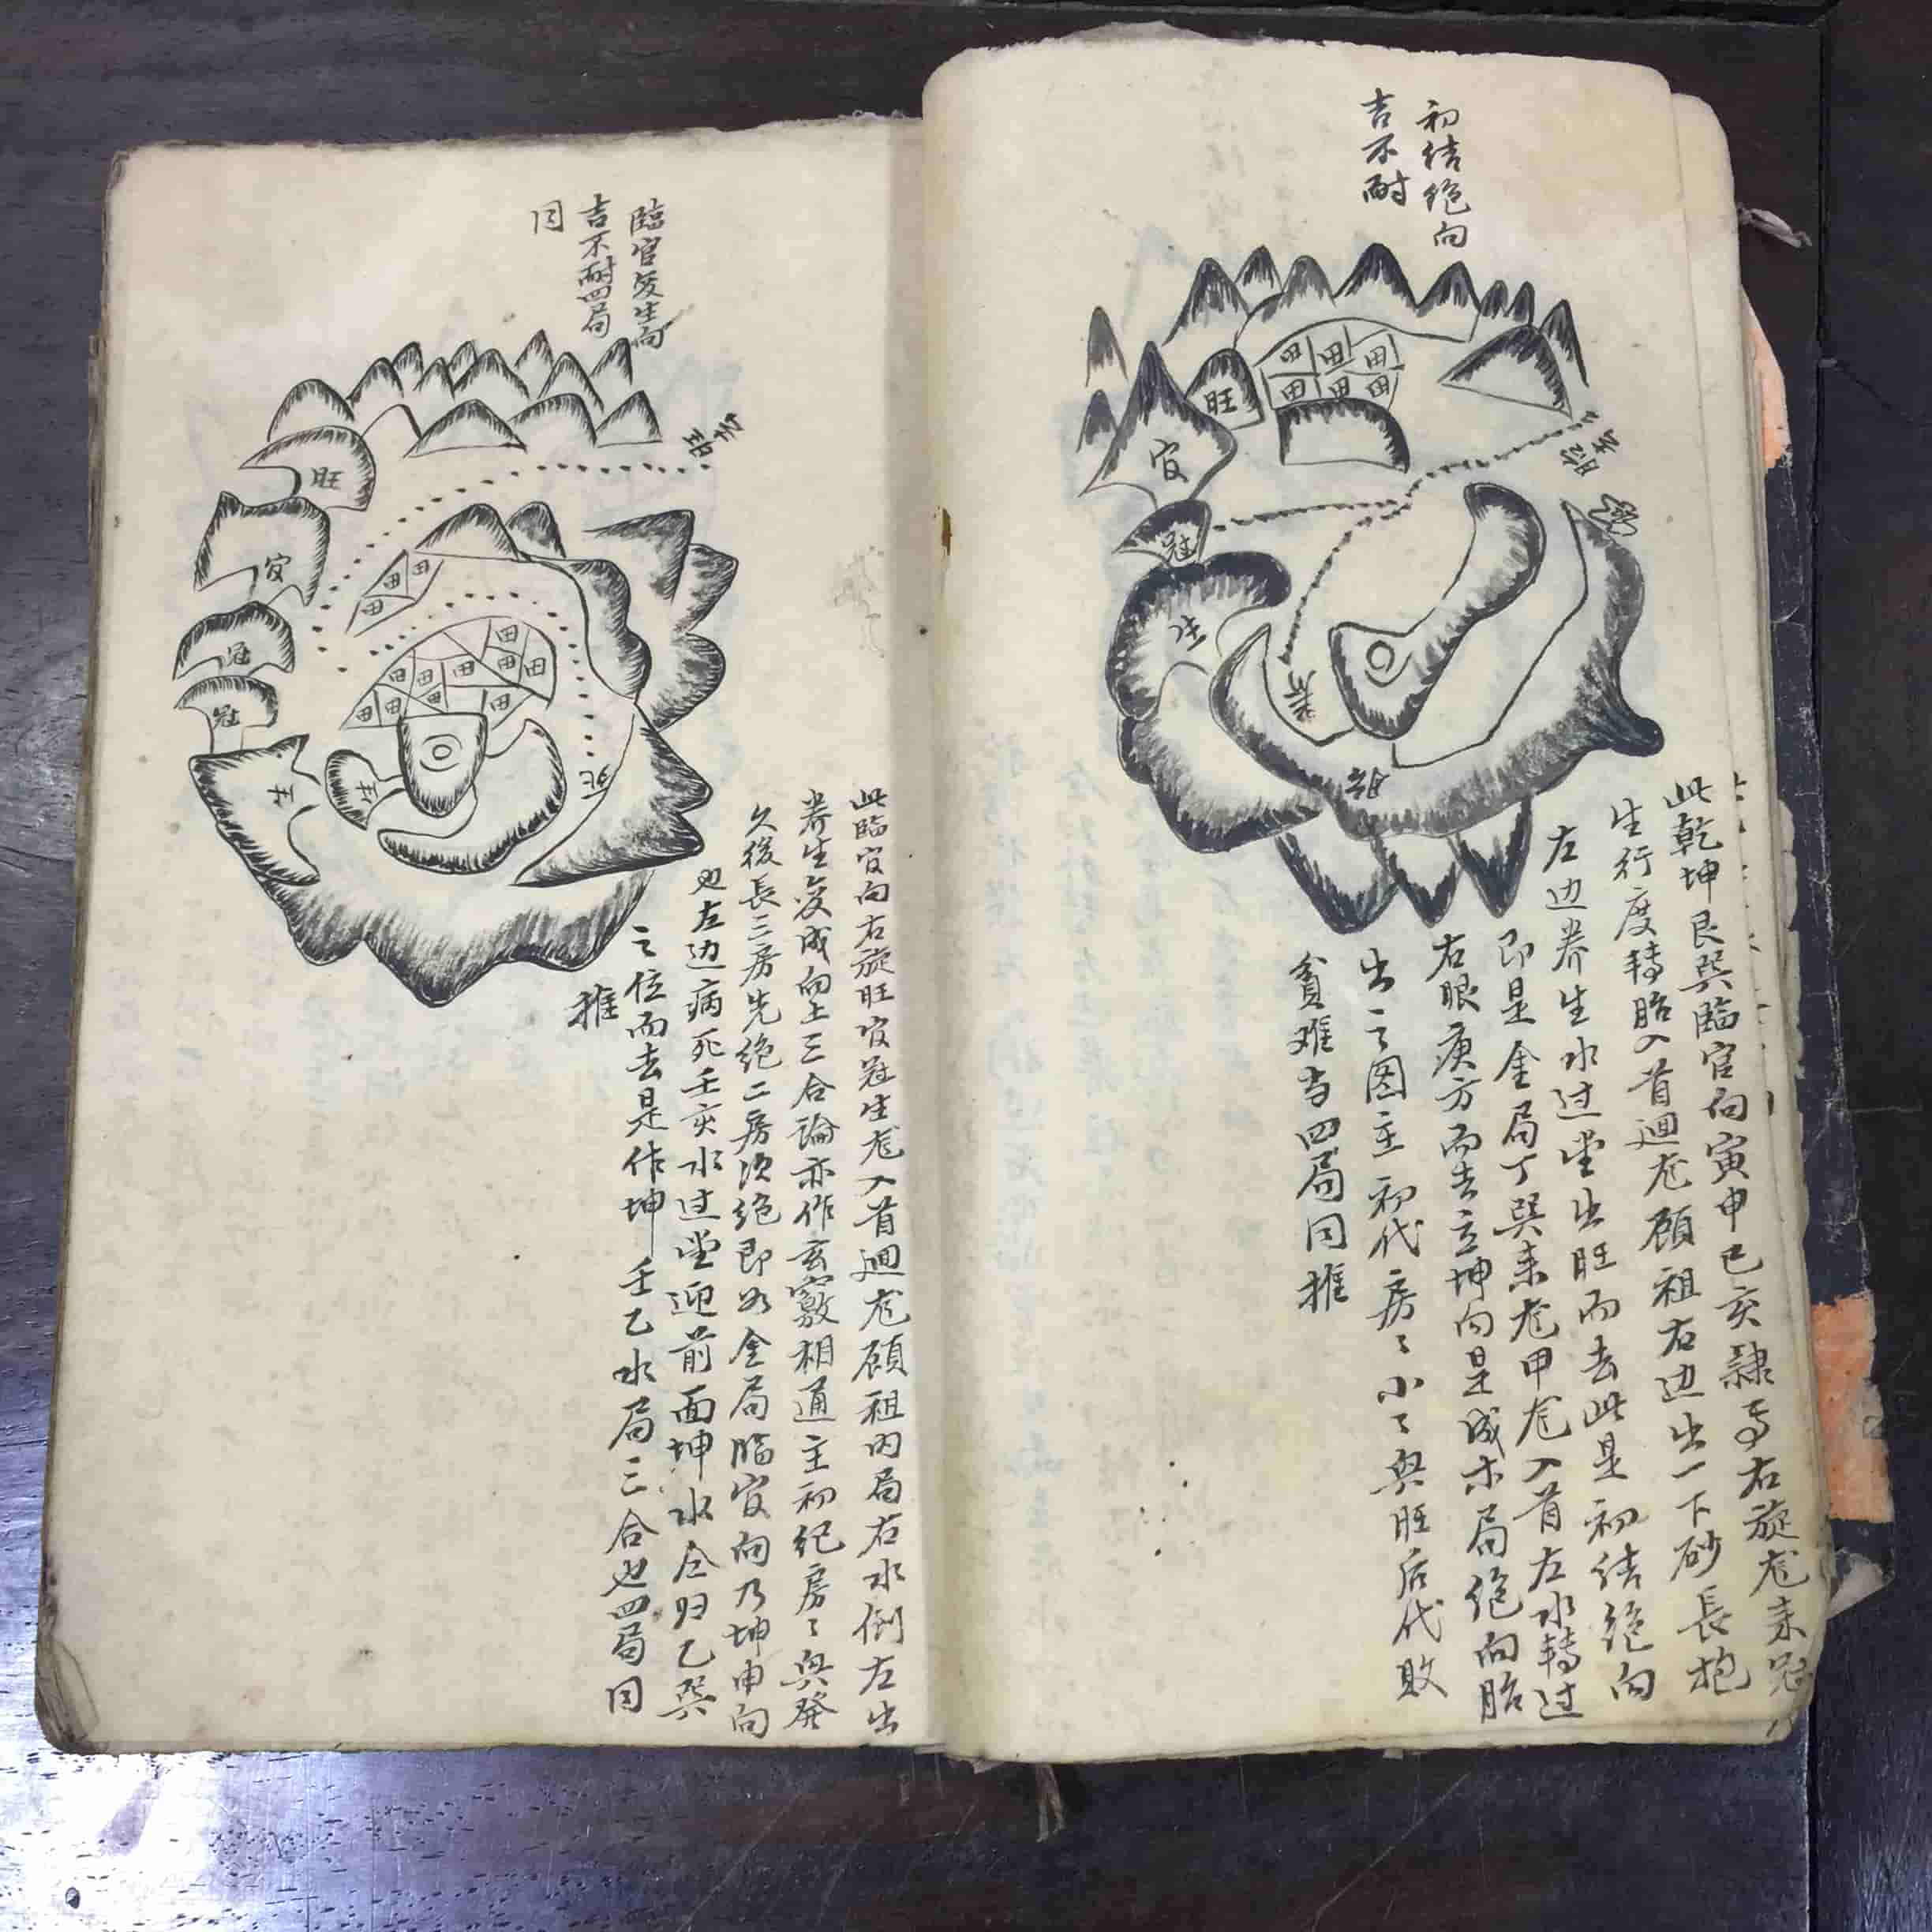 初结绝向
吉不耐
旺
田 田 田
田 田 田
官
冠
生
养
胎
此乾坤艮巽臨官向寅申巳亥隷焉右旋龙来冠
生行度轉胎入首迴龙顾祖右边出一下砂長抱
左边养生水过堂出旺而去此是初结绝向
即是金局丁巽来龙甲龙入首左水轉过
右眼庚方而去立坤向是成木局绝向胎
出之图主初代房々小々興旺后代敗
貧难当四局同推
臨官変生向
吉不耐四局
同
旺
官
冠
冠
田 田
田
田
田 田 田 田 田
田 田 田 田
死
此臨官向右旋旺官冠生龙入首迴龙顾祖内局右水倒左出
养生変成向上三合論亦作玄竅相通主初纪房々興發
久後長三房先绝二房次绝即如金局臨官向乃坤申向
也左边病死壬亥水过堂迎前面坤水仝归乙巽
之位而去是作坤壬乙水局三合也四局同
推